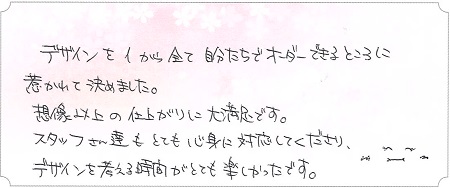 デザインを1から全て自分たちでオーダーできるところに
惹かれて決めました。
想像以上の仕上がりに大満足です。
スタッフさん達もとても心身に対応してくださり、
デザインを考える時間がとても楽しかったです。